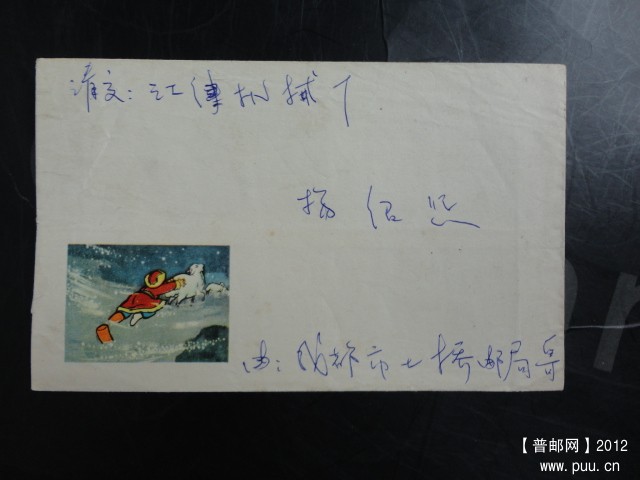 请交:江津机械厂
杨绍
由:成都市七桥邮局寄
【普邮网】2012
www.puu.cn